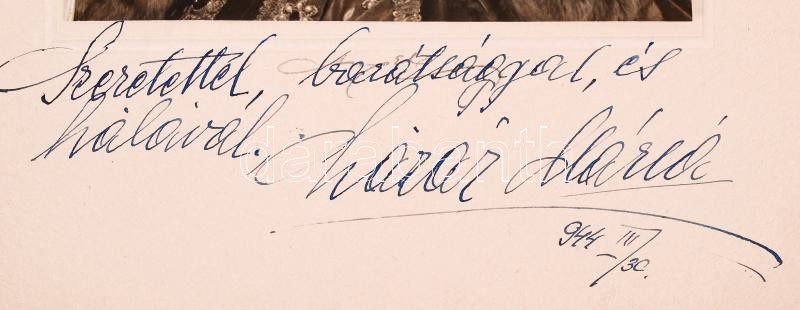 Szeretettel, barátsággal, és
hálával. Lázár Mária
944 III/30.
darabanth